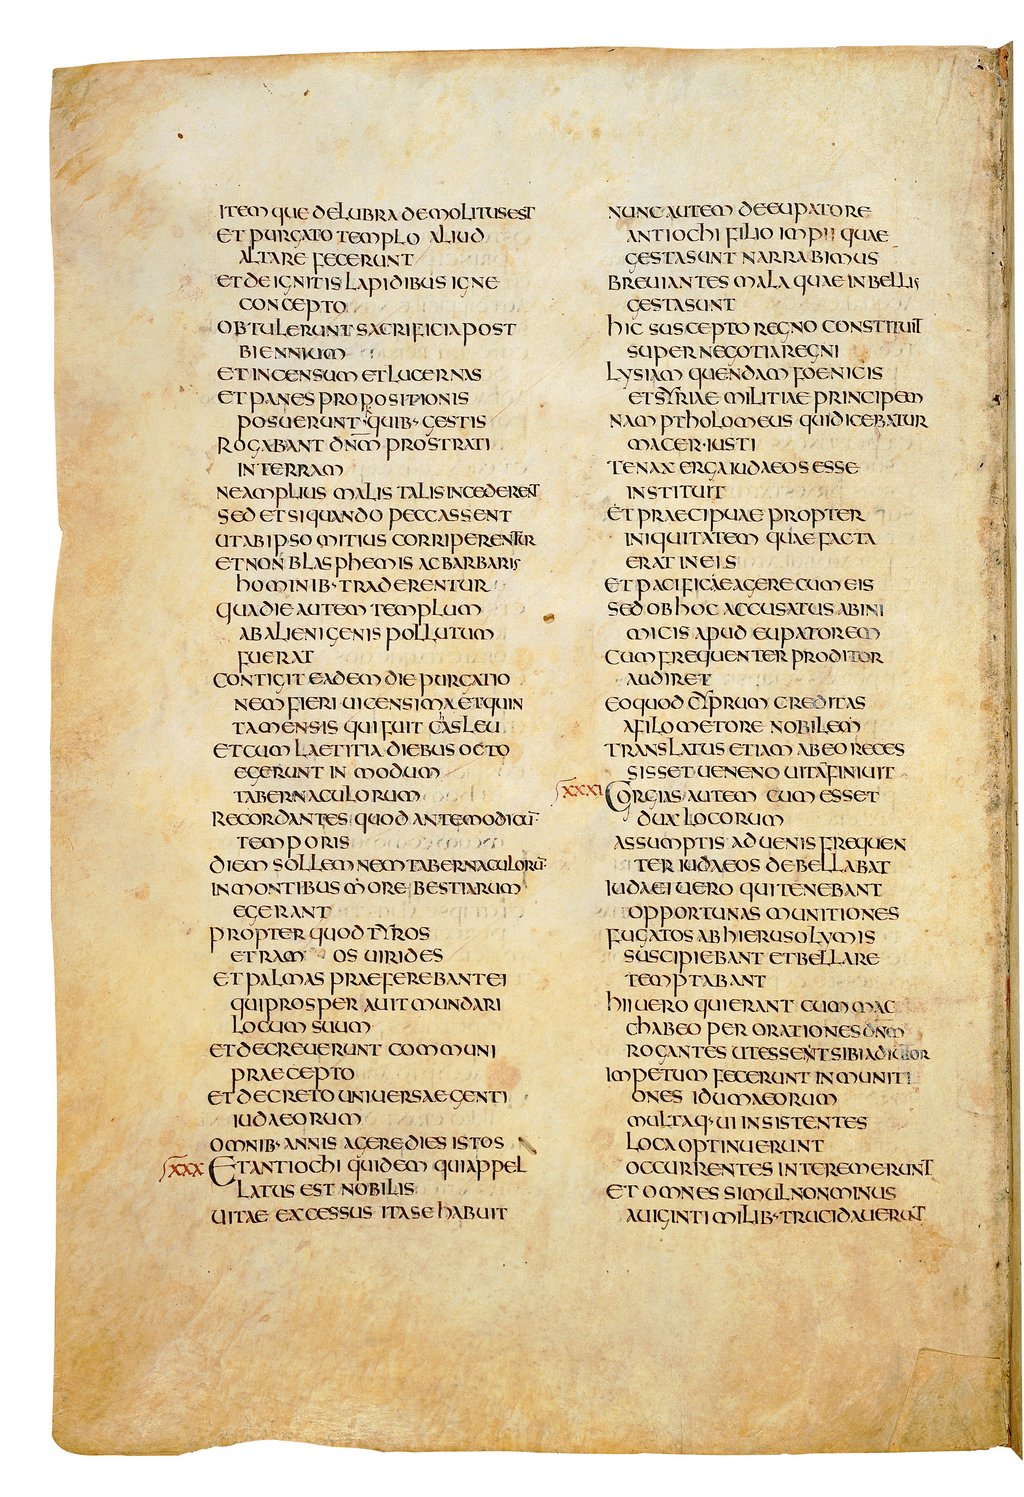 ITEMQUE DELUBRA DEMOLITUS EST
ET PURGATO TEMPLO ALIUD
ALTARE FECERUNT
ET DE IGNITIS LAPIDIBUS IGNE
CONCEPTO
OBTULERUNT SACRIFICIA POST
BIENNIUM
ET INCENSUM ET LUCERNAS
ET PANES PROPOSITIONIS
POSUERUNT QUIB· GESTIS
ROGABANT DN̄M PROSTRATI
IN TERRAM
NE AMPLIUS MALIS TALIS INCEDERENT
SED ET SI QUANDO PECCASSENT
UT AB IPSO MITIUS CORRIPERENTUR
ET NON BLASPHEMIS AC BARBARIS
HOMINIB· TRADERENTUR
QUA DIE AUTEM TEMPLUM
AB ALIENIGENIS POLLUTUM
FUERAT
CONTIGIT EADEM DIE PURGATIO
NEM FIERI UICENSIMA ET QUIN
TA MENSIS QUI FUIT CASLEU
ET CUM LAETITIA DIEBUS OCTO
EGERUNT IN MODUM
TABERNACULORUM
RECORDANTES QUOD ANTE MODICŪ
TEMPORIS
DIEM SOLLEMNEM TABERNACULORŪ
IN MONTIBUS MORE BESTIARUM
EGERANT
PROPTER QUOD TYROS
ET RAM OS UIRIDES
ET PALMAS PRAEFEREBANT EI
QUI PROSPERAUIT MUNDARI
LOCUM SUUM
ET DECREUERUNT COMMUNI
PRAECEPTO
ET DECRETO UNIUERSAE GENTI
IUDAEORUM
OMNIB· ANNIS AGERE DIES ISTOS
XXX ET ANTIOCHI QUIDEM QUI APPEL
LATUS EST NOBILIS
UITAE EXCESSUS ITA SE HABUIT
NUNC AUTEM DE EUPATORE
ANTIOCHI FILIO IMPII QUAE
GESTA SUNT NARRABIMUS
BREUIANTES MALA QUAE IN BELLIS
GESTA SUNT
HIC SUSCEPTO REGNO CONSTITUIT
SUPER NEGOTIA REGNI
LYSIAM QUENDAM FOENICIS
ET SYRIAE MILITIAE PRINCIPEM
NAM PTHOLOMEUS QUI DICEBATUR
MACER· IUSTI
TENAX ERGA IUDAEOS ESSE
INSTITUIT
ET PRAECIPUAE PROPTER
INIQUITATEM QUAE FACTA
ERAT IN EIS
ET PACIFICAE AGERE CUM EIS
SED OB HOC ACCUSATUS AB INI
MICIS APUD EUPATOREM
CUM FREQUENTER PRODITOR
AUDIRET
EO QUOD CYPRUM CREDITAS
A FILOMETORE NOBILEM
TRANSLATUS ETIAM AB EO RECES
SISSET UENENO UITĀ FINIUIT
XXXI GORGIAS AUTEM CUM ESSET
DUX LOCORUM
ASSUMPTIS ADUENIS FREQUEN
TER IUDAEOS DEBELLABAT
IUDAEI UERO QUI TENEBANT
OPPORTUNAS MUNITIONES
FUGATOS AB HIERUSOLYMIS
SUSCIPIEBANT ET BELLARE
TEMPTABANT
HII UERO QUI ERANT CUM MAC
CHABEO PER ORATIONES DN̄M
ROGANTES UT ESSENT SIBI ADIUTOR
IMPETUM FECERUNT IN MUNITI
ONES IDUMAEORUM
MULTAQ· UI INSISTENTES
LOCA OPTINUERUNT
OCCURRENTES INTEREMERUNT
ET OMNES SIMUL NON MINUS
A UIGINTI MILIB· TRUCIDAUERUNT